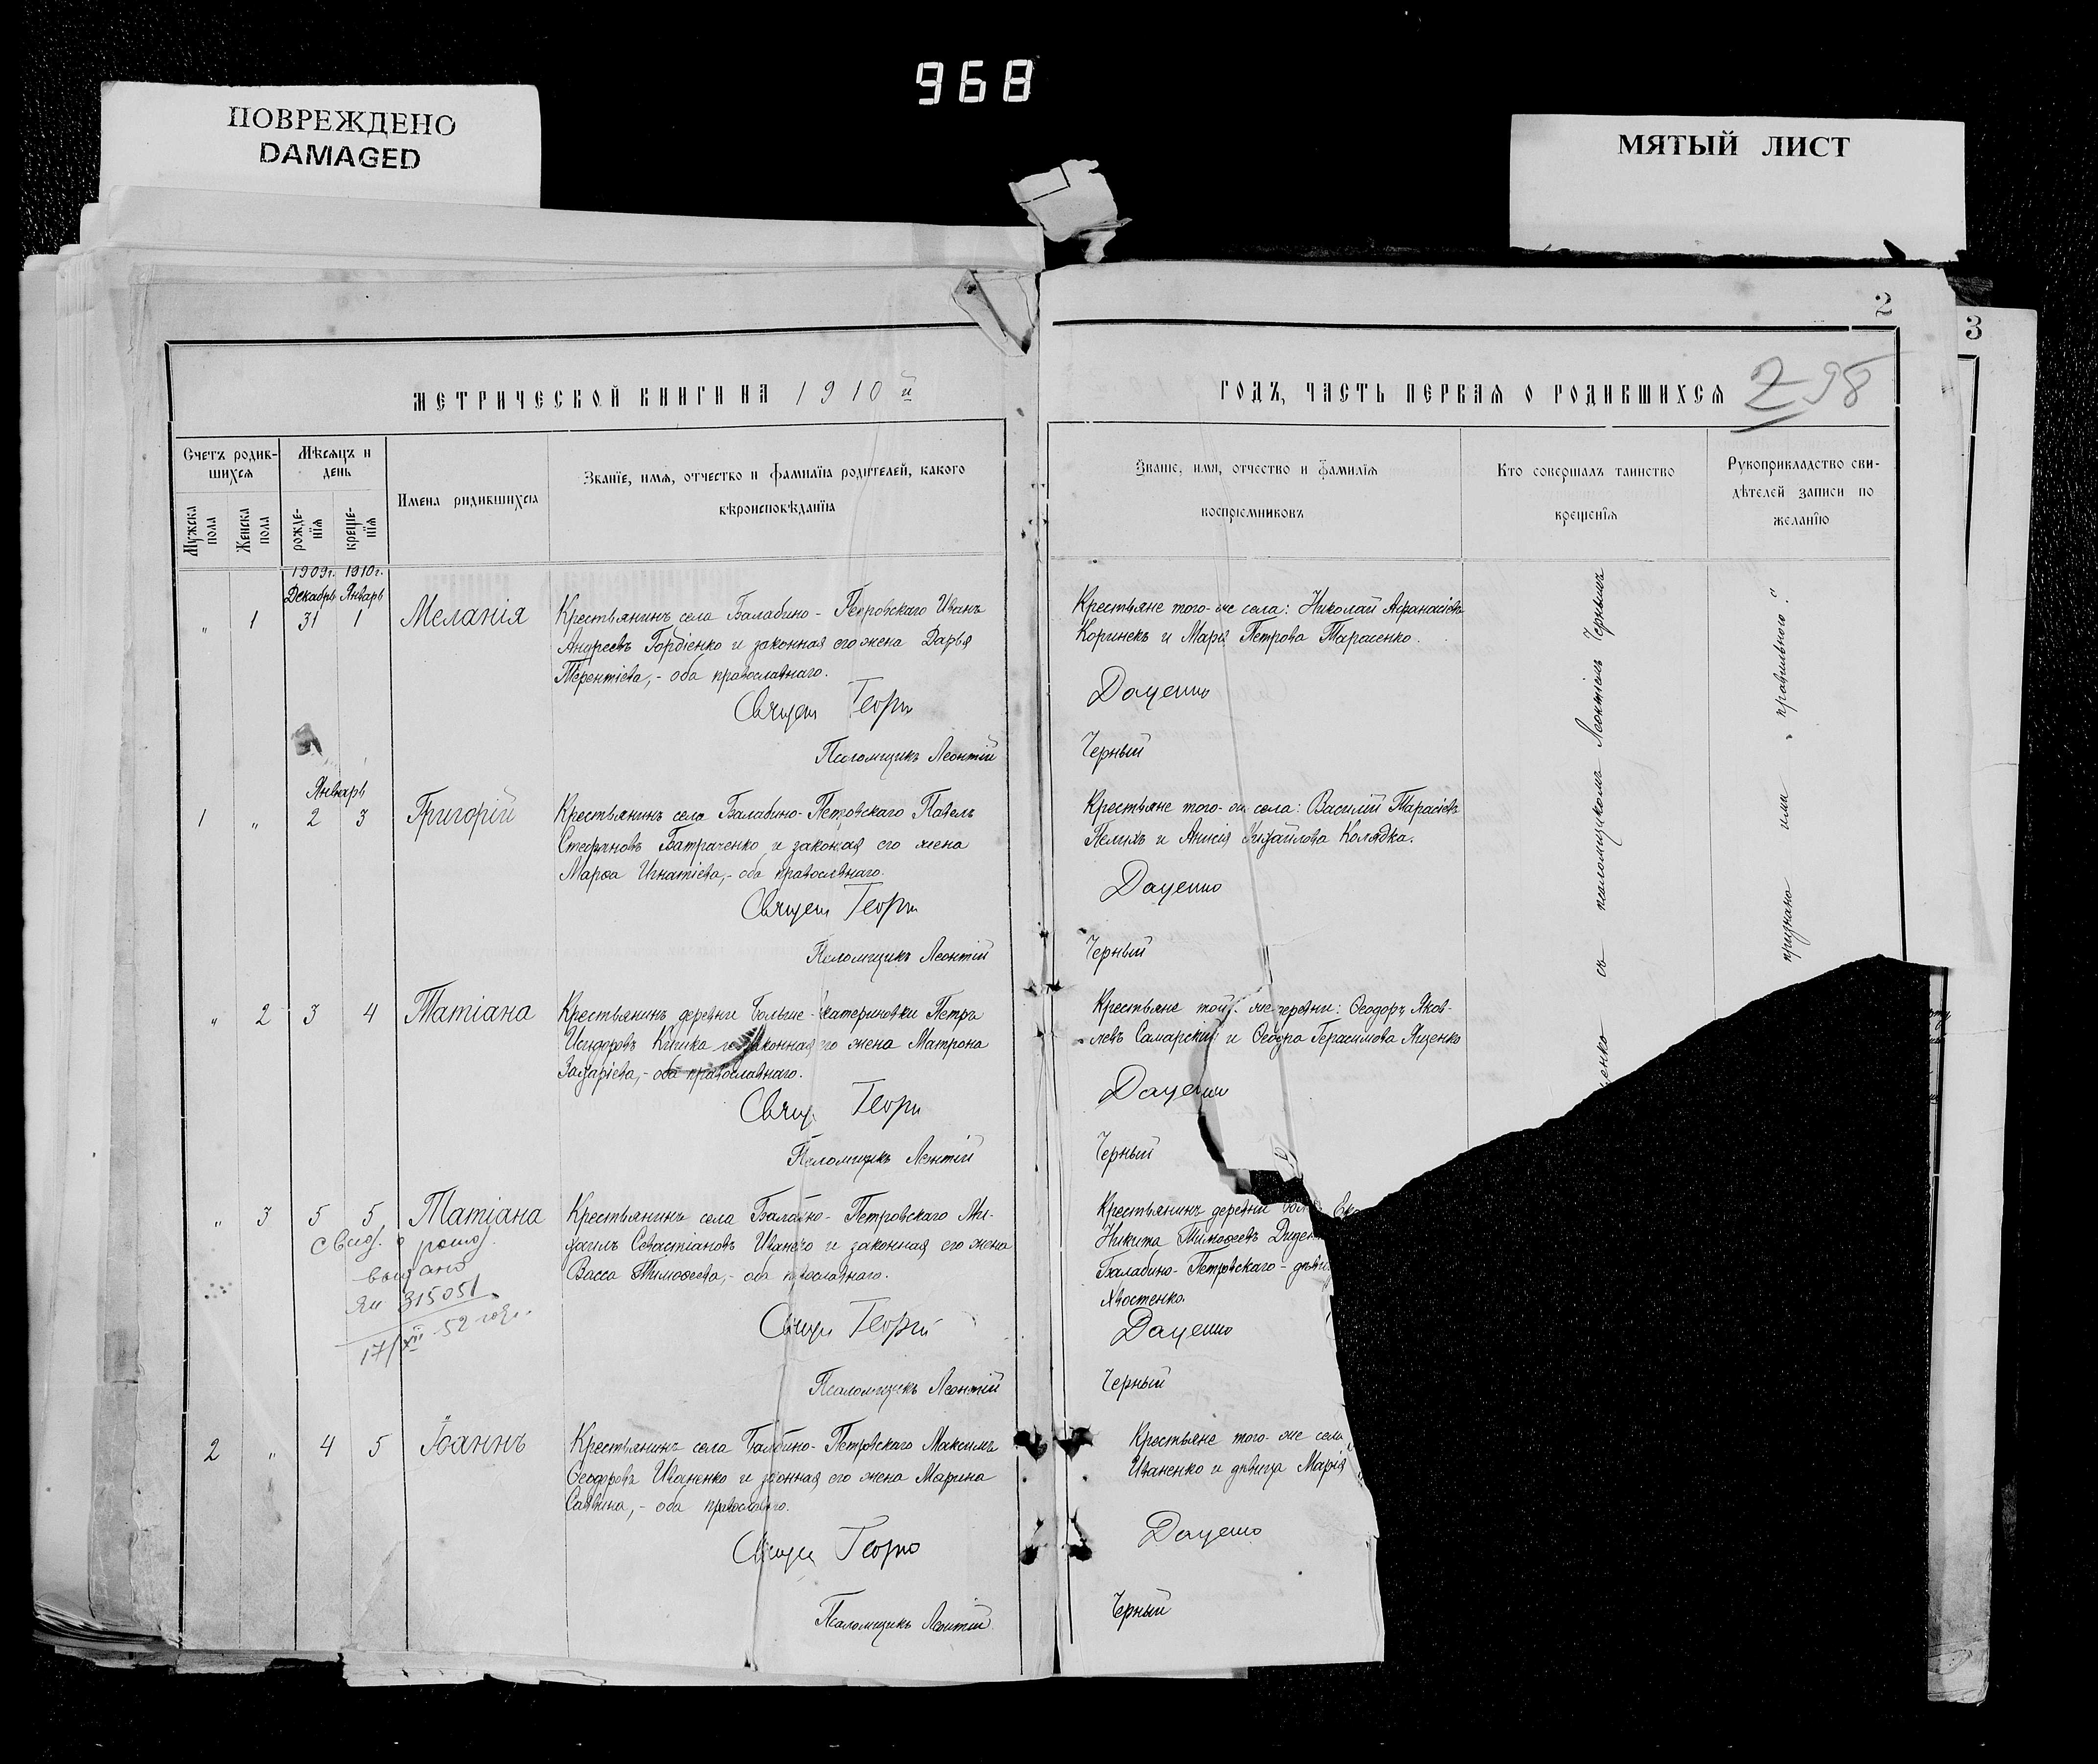 968
ПОВРЕЖДЕНО
DAMAGED
МЯТЫЙ ЛИСТ
2
3
МЕТРИЧЕСКОЙ КНИГИ НА 1910й
ГОДЪ, ЧАСТЬ ПЕРВАЯ О РОДИВШИХСЯ
Z 98
Счетъ родив-
шихся
Мѣсяцъ и
день
Имена родившихся
Званїе, имя, отчество и фамилїя родителей, какого
вѣроисповѣданїя
Мужска
пола
Женска
пола
рожде-
нїя
креще-
нїя
Званіе, имя, отчество и фамилїя
воспріемниковъ
Кто совершалъ таинство
крещенїя
Рукоприкладство сви-
дѣтелей записи по
желанїю
1909г. 1910г.
Декабрь Январь
" 1 31 1 Меланія
Крестьянинъ села Балабино-Петровскаго Иванъ
Андреевъ Гордіенко и законная его жена Дарья
Терентіева,- оба православнаго.
Священ Георги
Псаломщикъ Леонтій
Крестьяне того-же села: Николай Афанасіевъ
Коринекъ и Марія Петрова Тарасенко.
Даценко
Черный
Январь
1 " 2 3 Григорій
Крестьянинъ села Балабино-Петровскаго Павелъ
Стефановъ Батраченко и законная его жена
Марѳа Игнатіева,- оба православнаго.
Священ Георги
Псаломщикъ Леонтій
Крестьяне того-же села: Василій Тарасіевъ
Пелихъ и Анисія Михайлова Колядка.
Даценко
Черный
" 2 3 4 Татіана
Крестьянинъ деревни Больше-Екатериновки Петръ
Исидоровъ Кишка и законная его жена Матрона
Захаріева,- оба православнаго.
Свящ. Георги
Псаломщикъ Леонтій
Крестьяне той-же деревни: Ѳеодоръ Яков-
левъ Самарскій и Ѳеодра Герасимова Яценко
Даценко
Черный
" 3 5 5 Татіана
Свид. о рожд.
выдано
ЯИ 315051
17/XII-52 года.
Крестьянинъ села Балабино-Петровскаго Ми-
хаилъ Севастіановъ Иваненко и законная его жена
Васса Тимоѳеева,- оба православнаго.
Свящ Георгій
Псаломщикъ Леонтій
Крестьянинъ деревни Боль
Никита Тимоѳеевъ Диден
Балабино-Петровскаго-дѣвиц
Хвостенко.
Даценко
Черный
2 " 4 5 Іоаннъ
Крестьянинъ села Балабино-Петровскаго Максимъ
Ѳеодоровъ Иваненко и законная его жена Марина
Саввина,- оба православнаго.
Священ Георгі
Псаломщикъ Леонтій
Крестьяне того-же села
Иваненко и дѣвица Марія
Даценко
Черный
ценко съ псаломщикомъ Леонтіемъ Чернымъ
признано ими правильного".